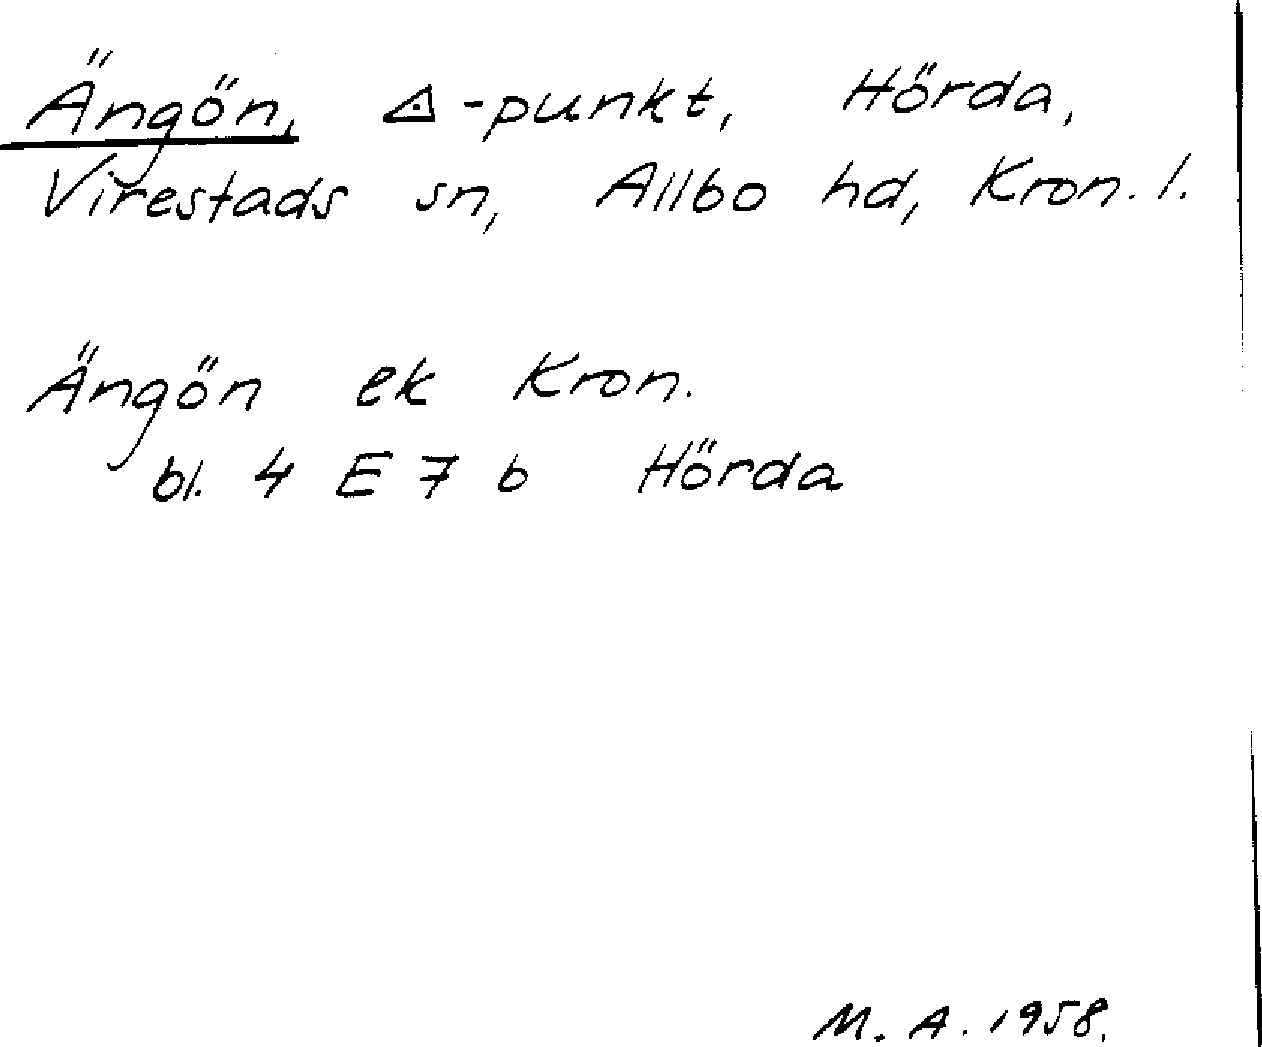 Ängön, ◬-punkt, Hörda,
Virestads sn, Allbo hd, Kron. l.
Ängön ek Kron.
bl. 4 E 7 b Hörda
M. A. 1958.